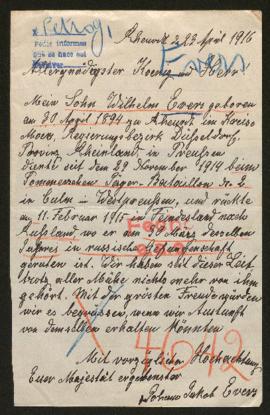 Petrog,
Pedir informes
que se hace mal
Rheurdt, 22 April 1916
Evers
Allergnädigster Koenig und Herr
Mein Sohn Wilhelm Evers geboren
am 30 April 1894 zu Rheurdt im Kreise
Moers, Regierungsbezirk Düsseldorf,
Provinz Rheinland in Preußen
diente seit dem 29 November 1914 beim
Pommerschen Jäger Bataillon Nr 2
in Culm in Westpreußen, und rückte
am 11. Februar 1915 in Feindesland nach
Rußland wo er den 29 März desselben
Jahres in russische Gefangenschaft
geraten ist. Wir haben seit dieser Zeit
trotz aller Mühe nichts mehr von ihm
gehört. Mit der grösten Freude würden
wir es begrüssen, wenn wir Auskunft
von demselben erhalten könnten
4612
Mit vorzüglicher Hochachtung
Eurer Majestät ergebenster
Jakob Evers